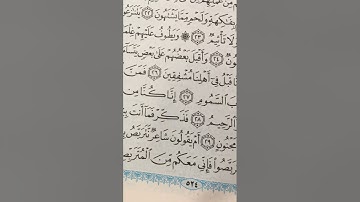 بِفَٰكِهَةٍ وَلَحْمٍ مِّمَّا يَشْتَهُونَ ٢٢ يَتَنَٰزَعُ
لَا تَأْثِيمٌ ٢٣ ۞ وَيَطُوفُ عَلَيْهِمْ
٢٤ وَأَقْبَلَ بَعْضُهُمْ عَلَىٰ بَعْضٍ
قَبْلُ فِىٓ أَهْلِنَا مُشْفِقِينَ ٢٦ فَمَنَّ
السَّمُومِ ٢٧ إِنَّا كُنَّا مِن
الرَّحِيمُ ٢٨ فَذَكِّرْ فَمَآ أَنتَ
مَجْنُونٍ ٢٩ أَمْ يَقُولُونَ شَاعِرٌ نَّتَرَبَّصُ
تَرَبَّصُوا۟ فَإِنِّى مَعَكُم مِّنَ
٥٢٤